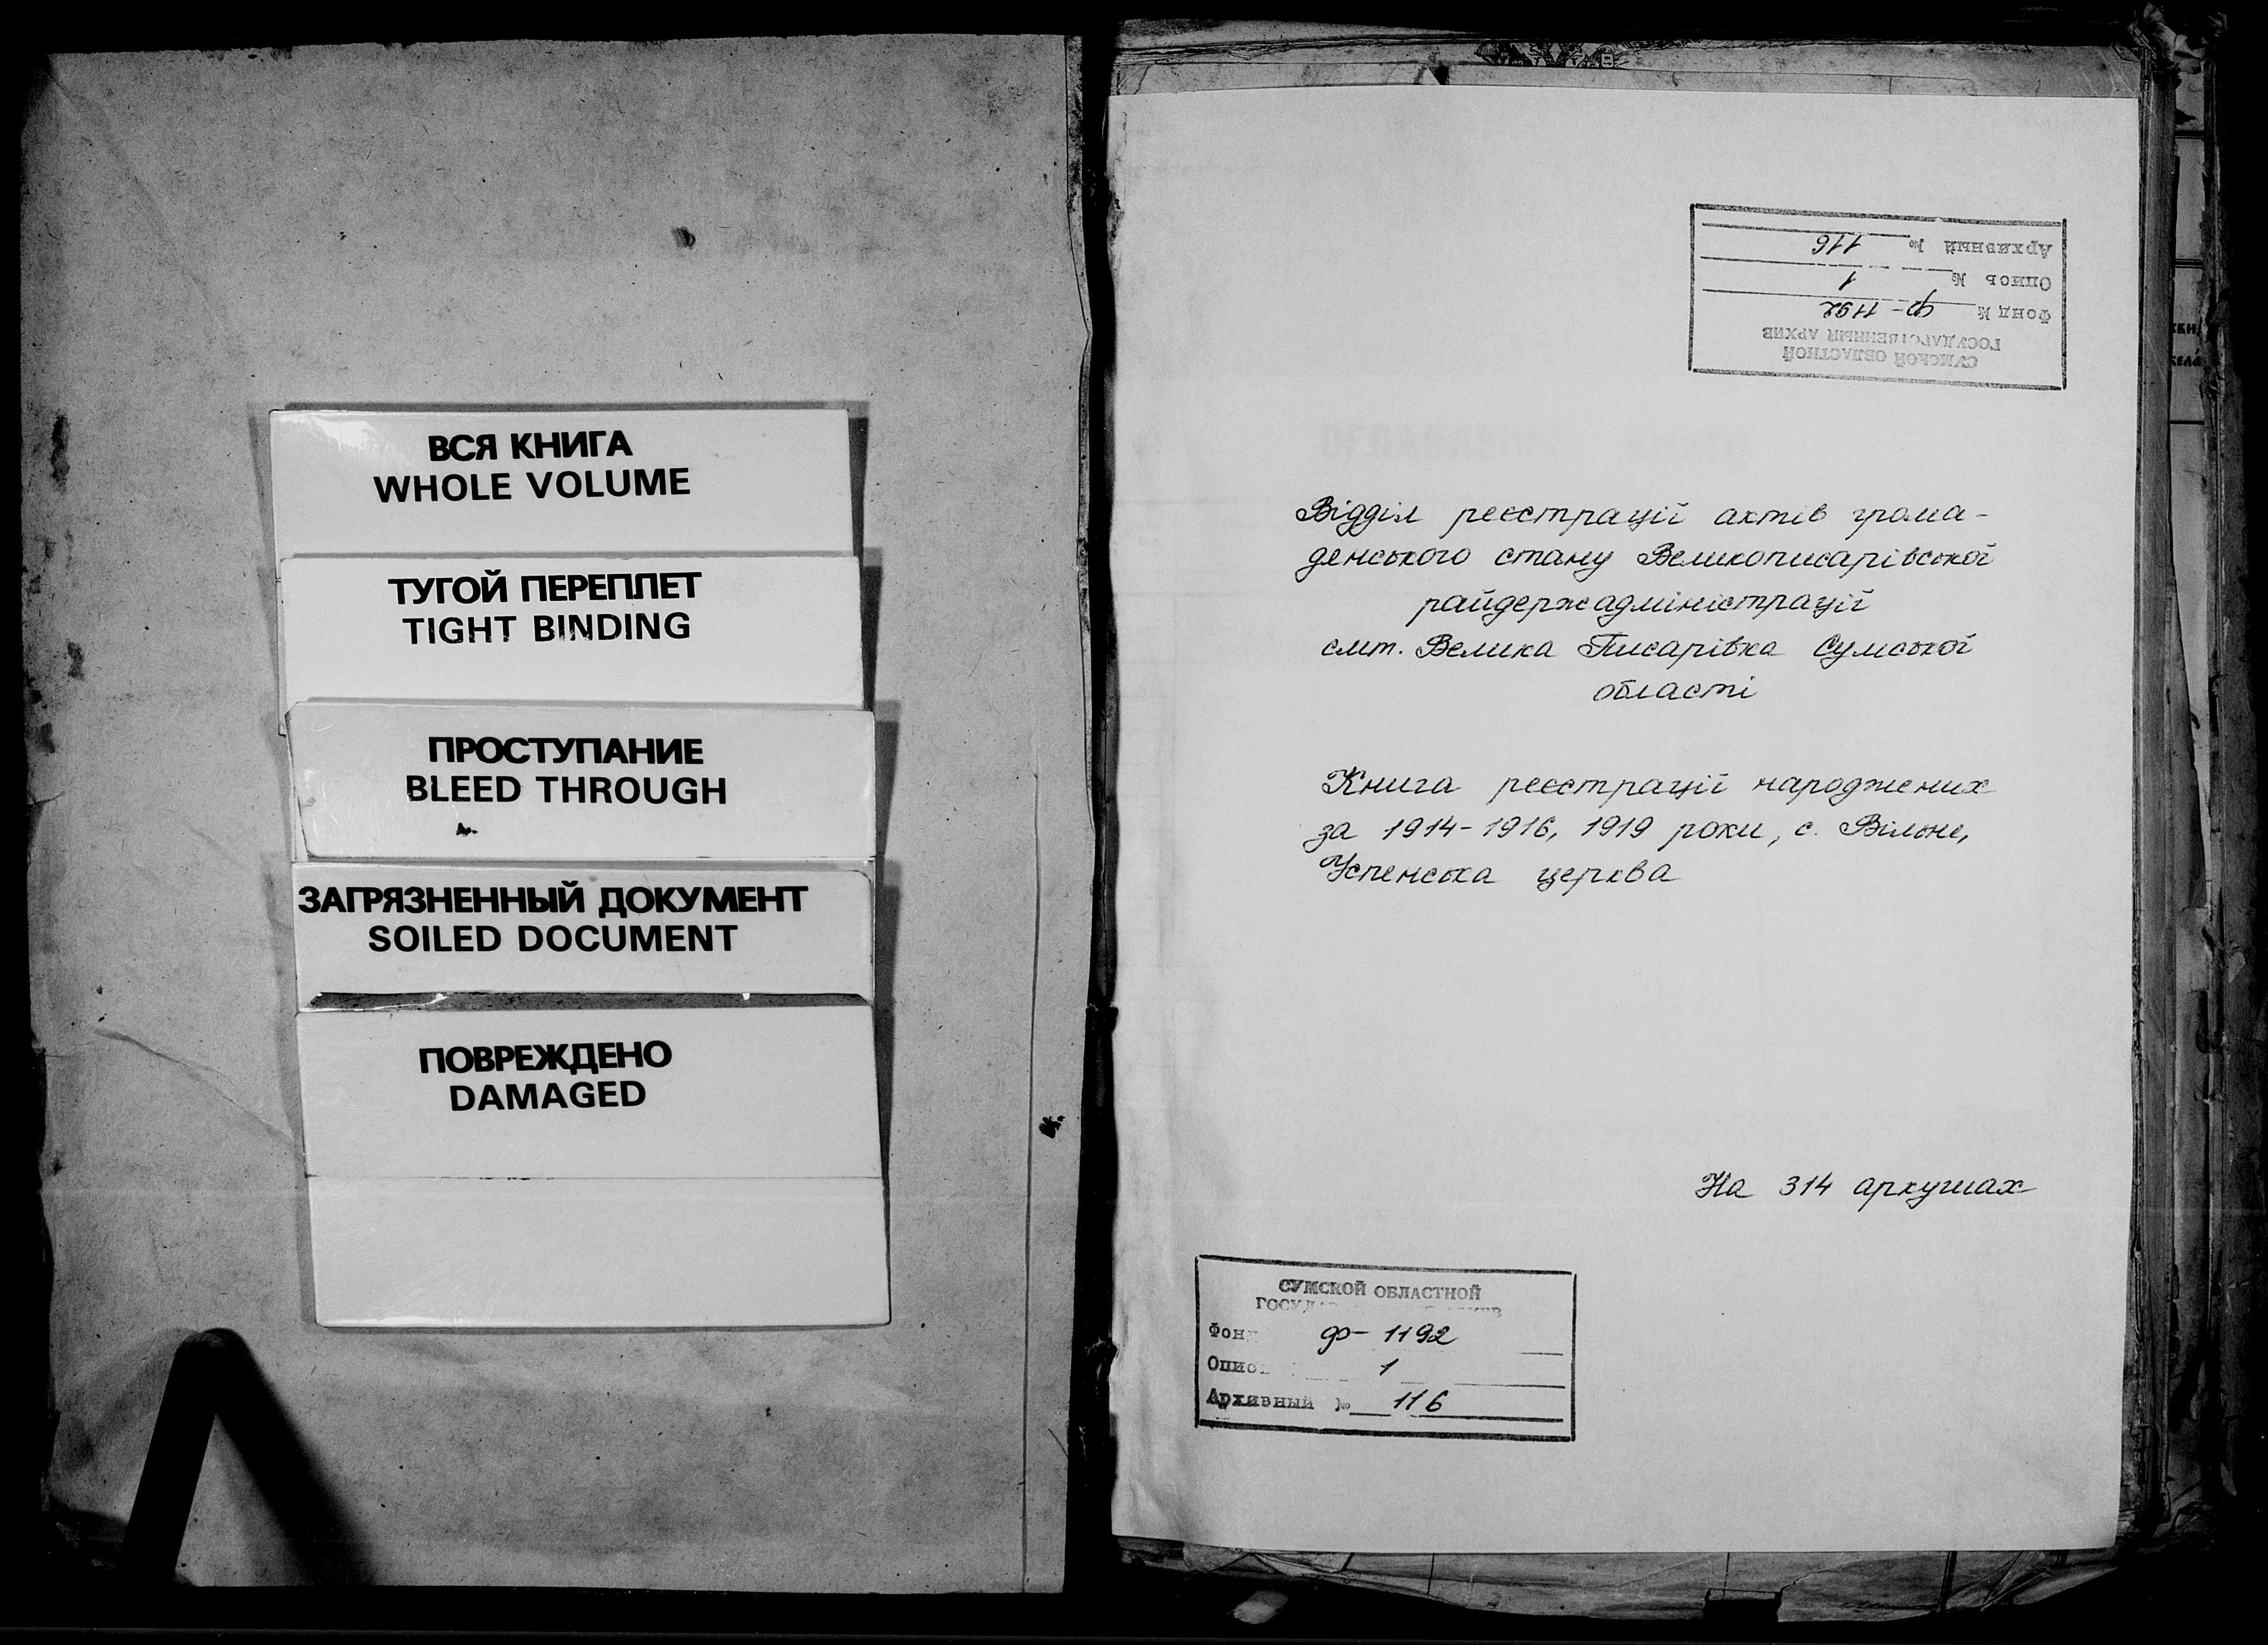 ВСЯ КНИГА
WHOLE VOLUME
ТУГОЙ ПЕРЕПЛЕТ
TIGHT BINDING
ПРОСТУПАНИЕ
BLEED THROUGH
ЗАГРЯЗНЕННЫЙ ДОКУМЕНТ
SOILED DOCUMENT
ПОВРЕЖДЕНО
DAMAGED
СУМСКОЙ ОБЛАСТНОЙ
ГОСУДАРСТВЕННЫЙ АРХИВ
Фонд № ф-1192
Опись № 1
Архивный № 116
Відділ реєстрації актів грома-
денського стану Великописарівської
райдержадміністрації
смт. Велика Писарівка Сумської
області
Книга реєстрації народжених
за 1914-1916, 1919 роки, с. Вільне,
Успенська церква
На 314 аркушах
СУМСКОЙ ОБЛАСТНОЙ
Фон ф-1192
Опис 1
Архивный № 116